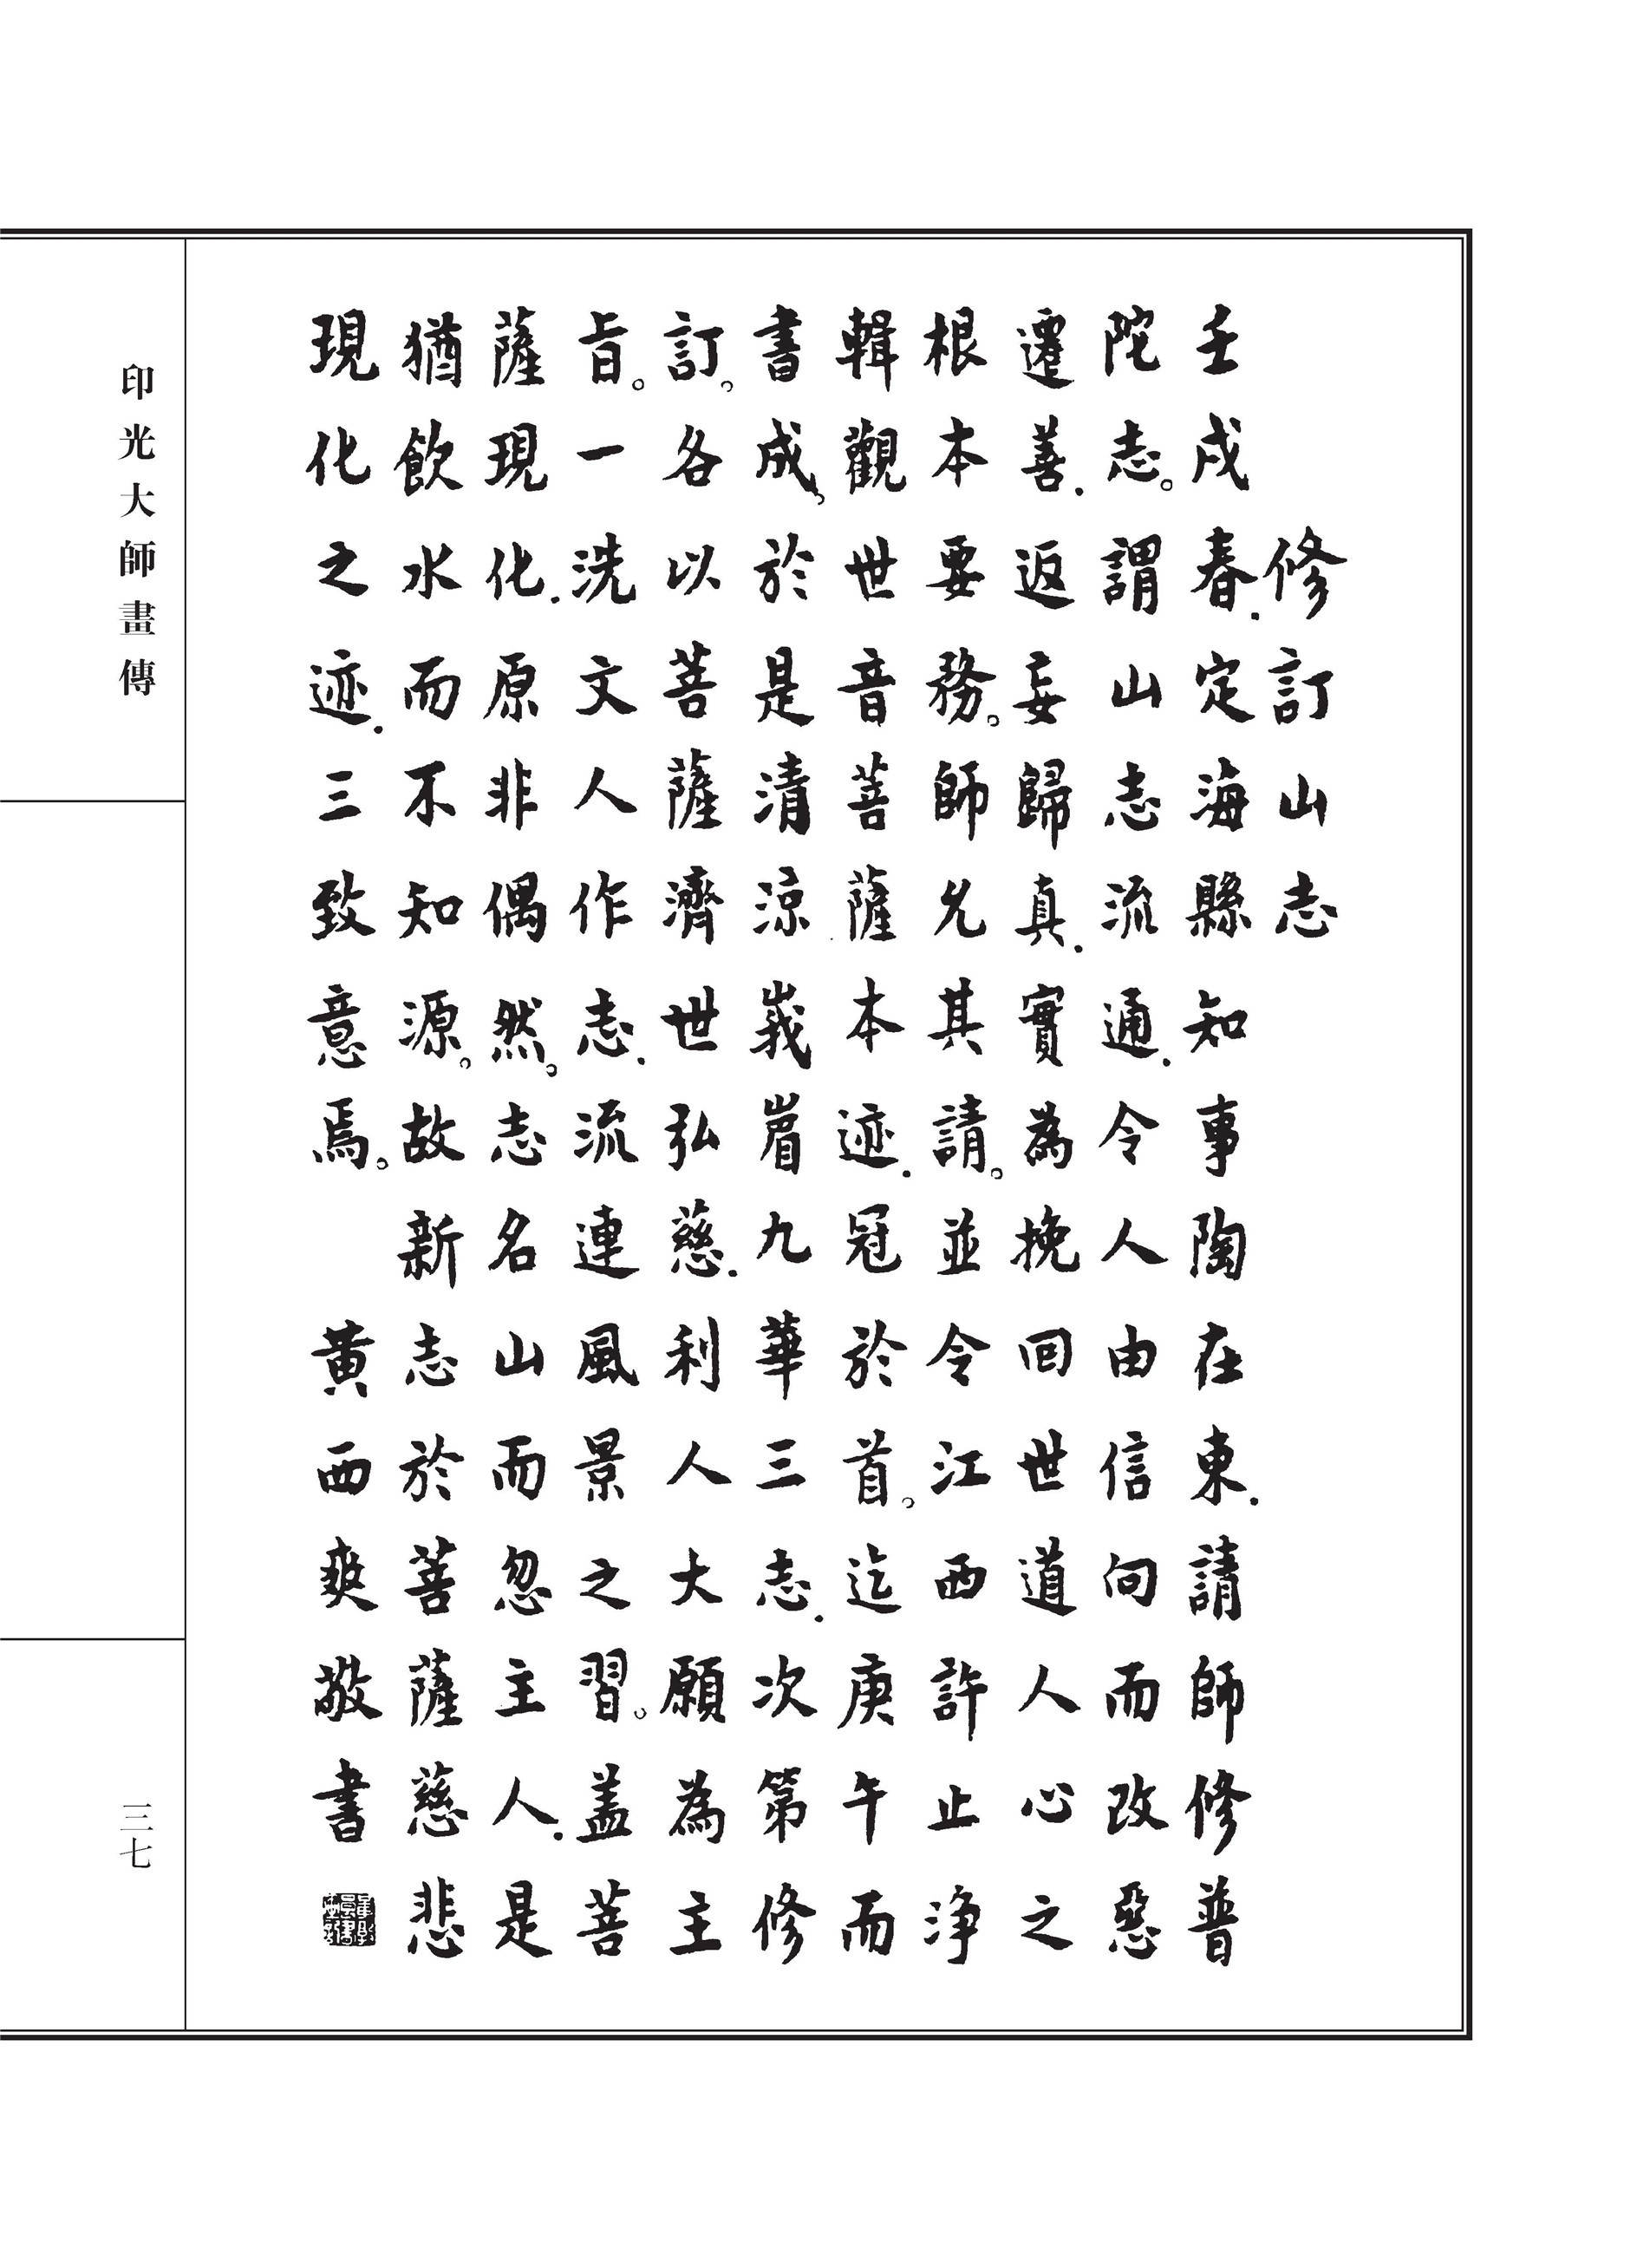 修訂山志
壬戌春.定海縣知事陶在東.請師修普
陀志。謂山志流通.令人由信向而改惡
遷善.返妄歸真.實為挽回世道人心之
根本要務。師允其請。並令江西許止淨
輯觀世音菩薩本迹.冠於首。迄庚午而
書成,於是清涼峩眉九華三志.次第修
訂。各以菩薩濟世弘慈.利人大願為主
旨。一洗文人作志.流連風景之習。盖菩
薩現化.原非偶然。志名山而忽主人.是
猶飲水而不知源。故新志於菩薩慈悲
現化之迹.三致意焉。
黄西爽敬書
印光大師畫傳
三七